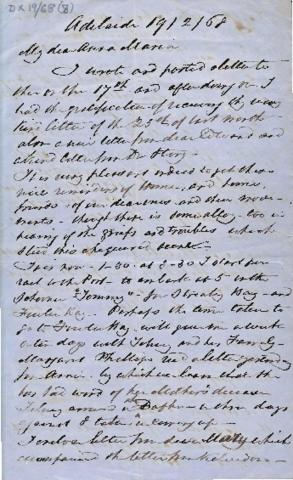 DX19/68(8)
Adelaide 19/2/68
My dear Anna Maria
I wrote and posted a letter to
thee on the 17th and after doing so I
had the gratification of receiving thy very
kind letter of the 25th of last month
also a nice letter from dear Edward and
a kind letter from Dr Story.
It is very pleasant indeed to get these
nice reminders of Home, and home
friends of our dear ones and their move
ments - though there is some alloy too in
hearing of the griefs and troubles which
attend this chequered scene.
It is now 1-30 at 3-30 I start per
rail to the Port - to embark at 5 in the
Schooner "Tommy" for Streaky Bay - and
Fowlers Bay. Perhaps the time taken to
go to Fowlers Bay will give me a week
or ten days with John, and his Family
Margaret Phillips had a letter yesterday
from Annie by which we learn that she
has had word of her Mother's decease
Johnny arrived in the Daphne in three days
of I taken in carrying up -
I enclose letter from dear Mary which
accompanied the letter from